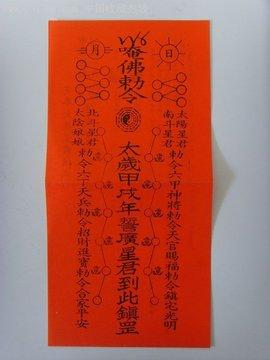 日
太陽星君
南斗星君
勅令六甲神將勅令天官賜福勅令鎮宅光明
唵佛勅令
太歲甲戌年誓廣星君到此鎮罡
月
北斗星君
太陰娘娘
勅令六丁天兵勅令招財進寶勅令合家平安